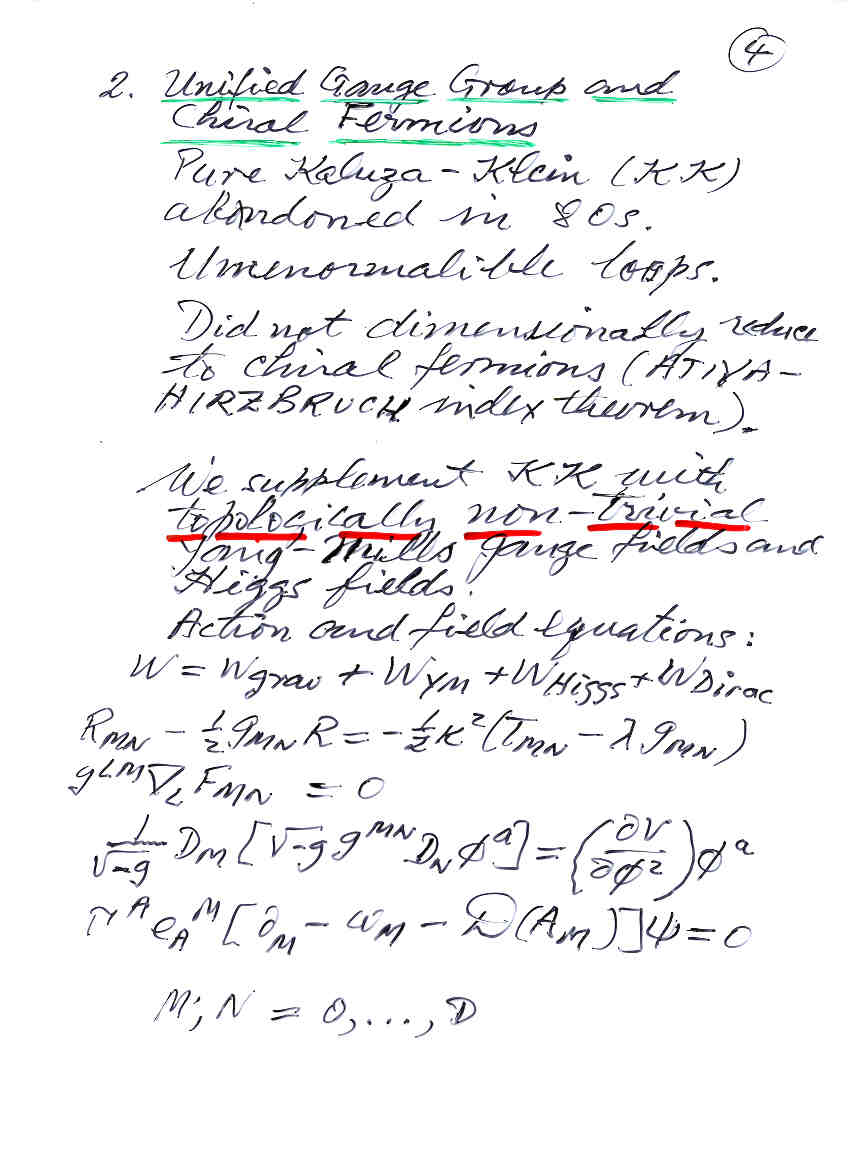 ④
2. Unified Gauge Group and
Chiral Fermions
Pure Kaluza-Klein (KK)
abandoned in 80s.
Unrenormalible loops.
Did not dimensionally reduce
to chiral fermions (ATIYA-
HIRZBRUCH index theorem).
We supplement KK with
topologically non-trivial
Yang-Mills gauge fields and
Higgs fields.
Action and field equations:
W = W_grav + W_YM + W_Higgs + W_Dirac
R_MN - 1/2 g_MN R = -1/2 K²(T_MN - λ g_MN)
g^LM ∇_L F_MN = 0
1/√-g D_M [√-g g^MN D_N ϕ^a] = (∂V/∂ϕ²) ϕ^a
Γ^A e_A^M [∂_M - ω_M - D(A_M)]Ψ = 0
M, N = 0, ..., D